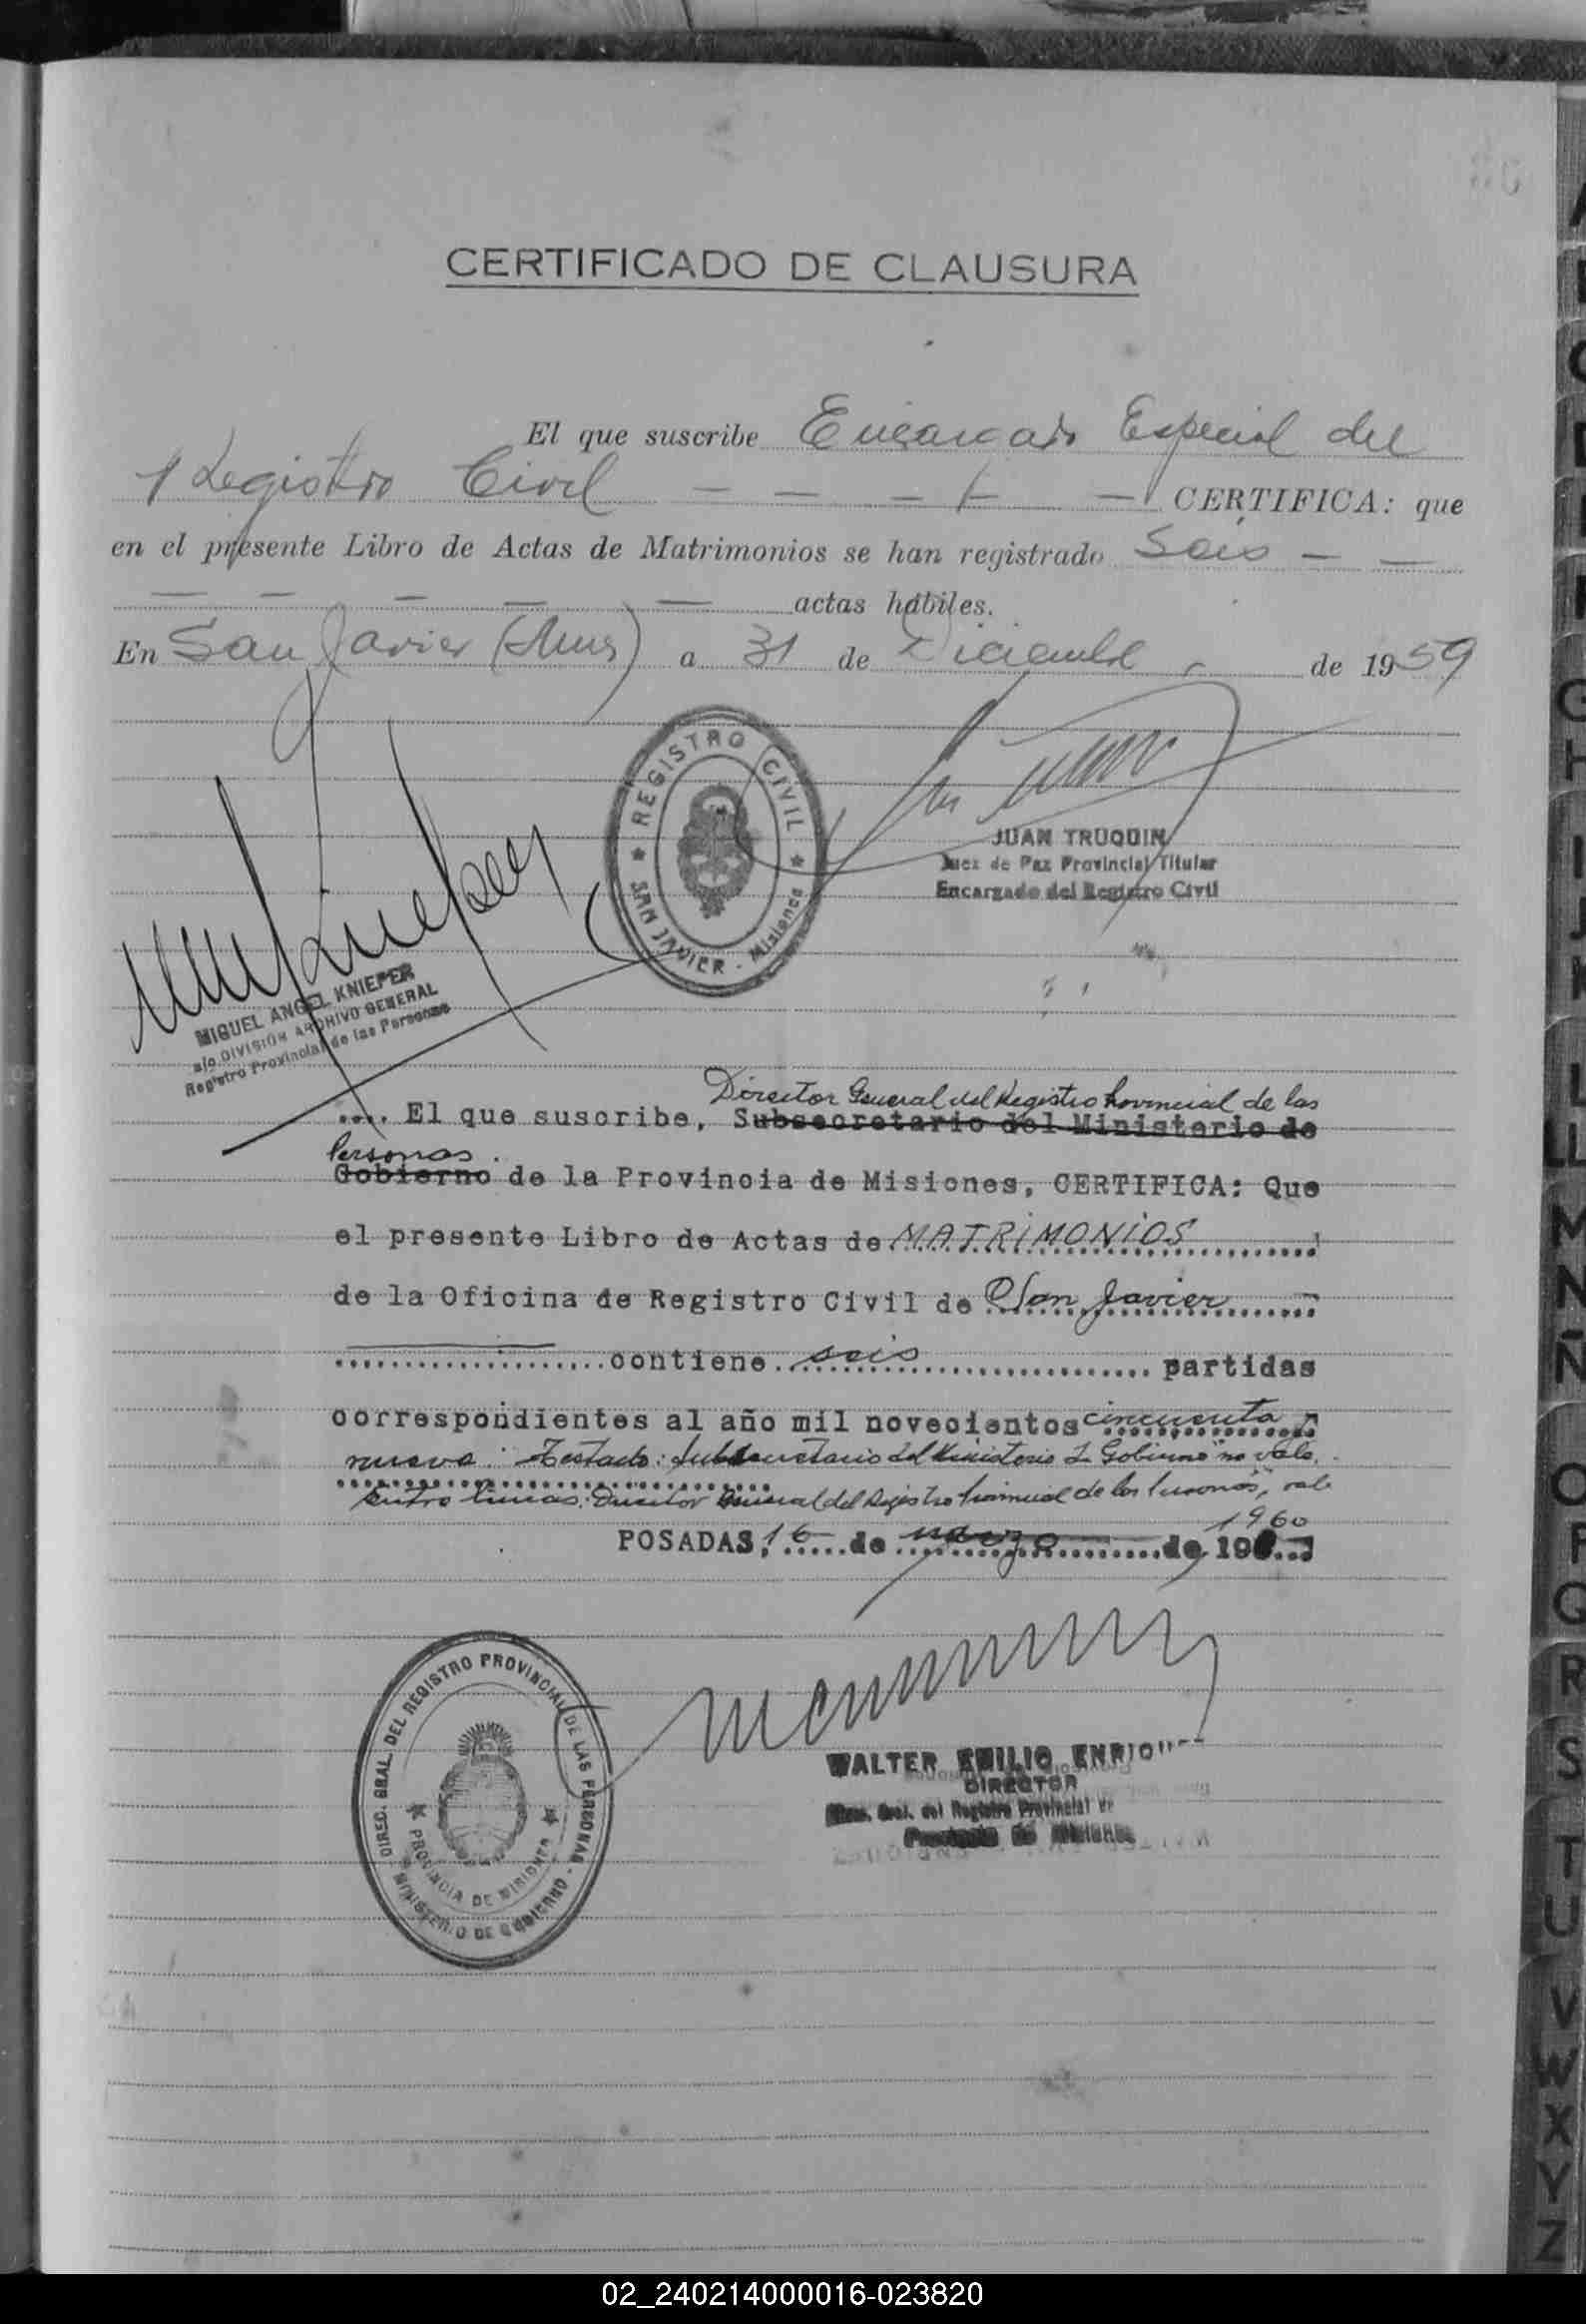 CERTIFICADO DE CLAUSURA
El que suscribe Encargado Especial del
Registro Civil — — — — — CERTIFICA: que
en el presente Libro de Actas de Matrimonios se han registrado Seis — —
— — — — — actas hábiles.
En San Javier (Mnes) a 31 de Diciembre de 1959
REGISTRO CIVIL
SAN JAVIER - Misiones
JUAN TRUQUIN
Juez de Paz Provincial Titular
Encargado del Registro Civil
MIGUEL ANGEL KNIEPER
a/c DIVISIÓN ARCHIVO GENERAL
Registro Provincial de las Personas
Director General del Registro Provincial de las
.... El que suscribe, Subsecretario del Ministerio de
Personas
Gobierno de la Provincia de Misiones, CERTIFICA: Que
el presente Libro de Actas de MATRIMONIOS
de la Oficina de Registro Civil de San Javier
contiene seis partidas
correspondientes al año mil novecientos cincuenta
nueve. Testado: Subsecretario del Ministerio de Gobierno "no vale.
Entre lineas: Director General del Registro Provincial de las Personas, vale
1960
POSADAS, 16 de marzo de 19
DIREC. GRAL. DEL REGISTRO PROVINCIAL DE LAS PERSONAS
PROVINCIA DE MISIONES
MINISTERIO DE GOBIERNO
WALTER EMILIO ENRIQUEZ
DIRECTOR
Direc. Gral. del Registro Provincial de
Provincia de Misiones
A
E
G
H
I
J
K
L
LL
M
N
Ñ
O
P
Q
R
S
T
U
V
W
X
Y
Z
02_240214000016-023820